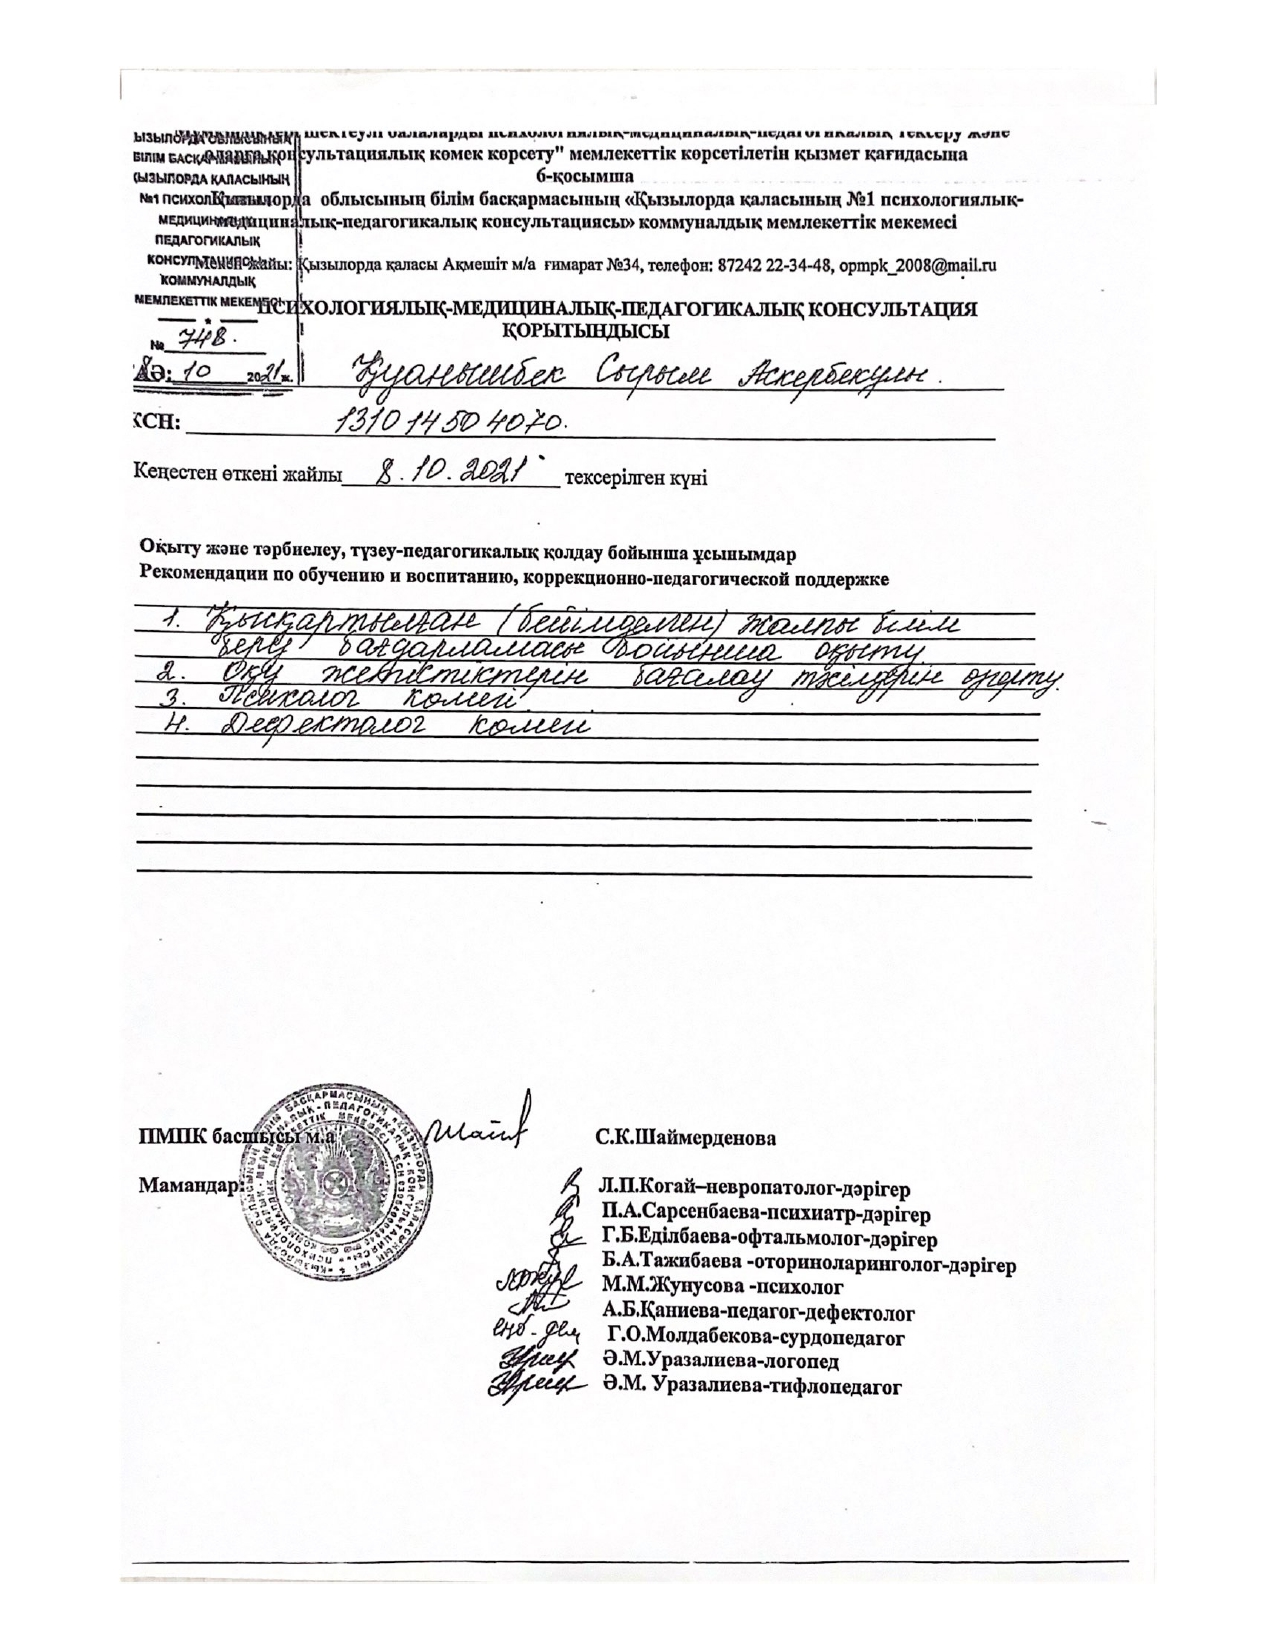 шектеулі балаларды психологиялық-медициналық-педагогикалық тексеру және
консультациялық комек корсету" мемлекеттік көрсетілетін қызмет қағидасына
6-қосымша
Қызылорда облысының білім басқармасының «Қызылорда қаласының №1 психологиялық-
медициналық-педагогикалық консультациясы» коммуналдық мемлекеттік мекемесі
Мекен-жайы: Қызылорда қаласы Ақмешіт м/а ғимарат №34, телефон: 87242 22-34-48, opmpk_2008@mail.ru
ПСИХОЛОГИЯЛЫҚ-МЕДИЦИНАЛЫҚ-ПЕДАГОГИКАЛЫҚ КОНСУЛЬТАЦИЯ
ҚОРЫТЫНДЫСЫ
ЫЗЫЛОРДА ОБЛЫСЫНЫҢ
БІЛІМ БАСҚАРМАСЫНЫҢ
ҚЫЗЫЛОРДА ҚАЛАСЫНЫҢ
№1 ПСИХОЛОГИЯЛЫҚ-
МЕДИЦИНАЛЫҚ-
ПЕДАГОГИКАЛЫҚ
КОНСУЛЬТАЦИЯСЫ
КОММУНАЛДЫҚ
МЕМЛЕКЕТТІК МЕКЕМЕСІ
№ 748.
8 10 2021 ж.
АӘ: Қуанышбек Сырым Аскербекулы.
ЖСН: 131014504070.
Кеңестен өткені жайлы 8.10.2021 тексерілген күні
Оқыту және тәрбиелеу, түзеу-педагогикалық қолдау бойынша ұсынымдар
Рекомендации по обучению и воспитанию, коррекционно-педагогической поддержке
1. Қысқартылған (бейімделген) жалпы білім
беру бағдарламасы бойынша оқыту.
2. Оқу жетістіктерін бағалау тәсілдерін өңдету.
3. Психолог көмегі.
4. Дефектолог көмегі
ПМПК басшысы м.а С.К.Шаймерденова
Мамандар: Л.П.Когай–невропатолог-дәрігер
П.А.Сарсенбаева-психиатр-дәрігер
Г.Б.Еділбаева-офтальмолог-дәрігер
Б.А.Тажибаева -оториноларинголог-дәрігер
М.М.Жунусова -психолог
А.Б.Қаниева-педагог-дефектолог
Г.О.Молдабекова-сурдопедагог
Ә.М.Уразалиева-логопед
Ә.М. Уразалиева-тифлопедагог